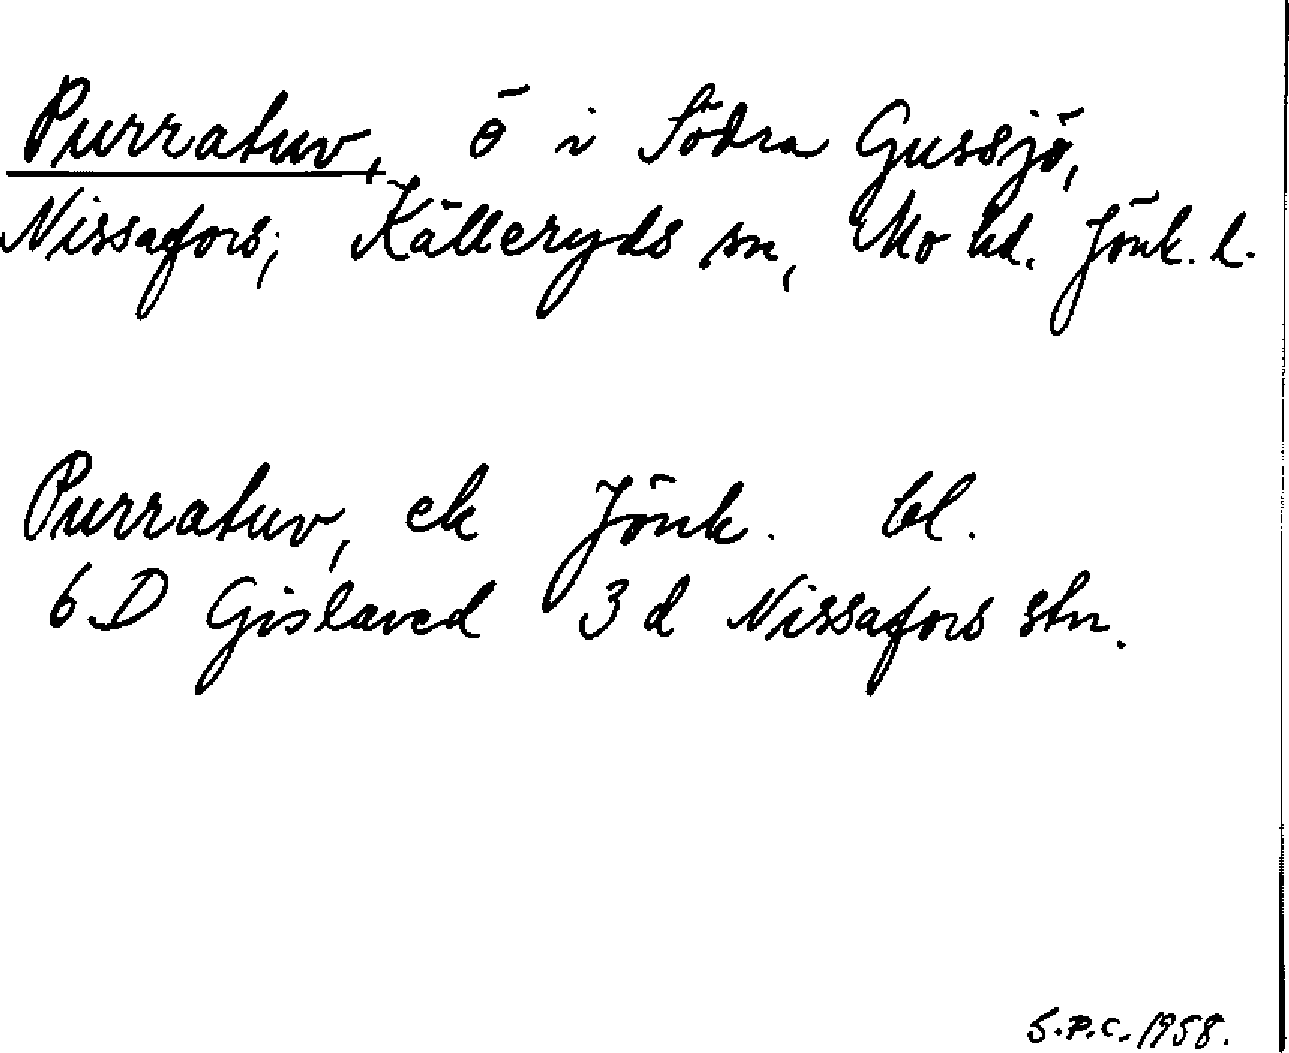 Purratuv, ö i Södra Gussjö,
Nissafors, Källeryds sn, Mo hd. Jönk. l.
Purratuv, ek Jönk. bl.
6 D Gislaved 3 d Nissafors stn.
S.P.C. 1958.